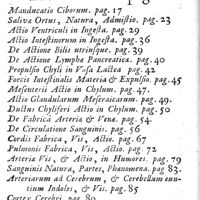 Manducatio Ciborum. pag. 17
Salivæ Ortus, Natura, Admistio. pag. 23
Actio Ventriculi in Ingesta. pag. 29
Actio Intestinorum in Ingesta. pag. 36
De Actione Bilis utriusque. pag. 39
De Actione Lymphæ Pancreaticæ. pag. 40
Propulsio Chyli in Vasa Lactea. pag. 42
Fæcis Intestinalis Materia & Expulsio. pag. 45
Mesenterii Actio in Chylum. pag. 47
Actio Glandularum Meseraicarum. pag. 49
Ductus Chyliferi Actio in Chylum. pag. 50
De Fabrica Arteriæ & Venæ. pag. 54
De Circulatione Sanguinis. pag. 56
Cordis Fabrica, Vis, Actio. pag. 67
Pulmonis Fabrica, Vis, Actio. pag. 72
Arteriæ Vis, & Actio, in Humores. pag. 79
Sanguinis Natura, Partes, Phænomena. pag 83.
Arteriarum ad Cerebrum, & Cerebellum euntium
Indoles, & Vis. pag. 85
Cortex Cerebri. pag. 89